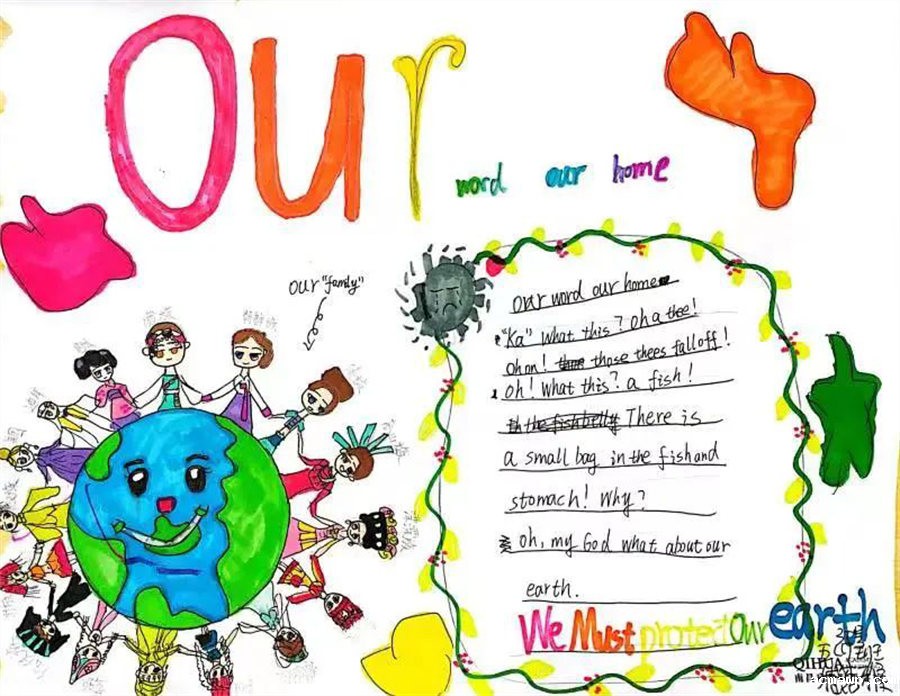 Our
word our home
our "family"
our word our home
"Ka" What this? Oh a thee!
Oh on! those thees fall off!
Oh! What this? a fish!
In the fish belly There is
a small bag in the fish and
stomach! Why?
oh, my God what about our
earth.
We Must protect Our earth
QIHUA